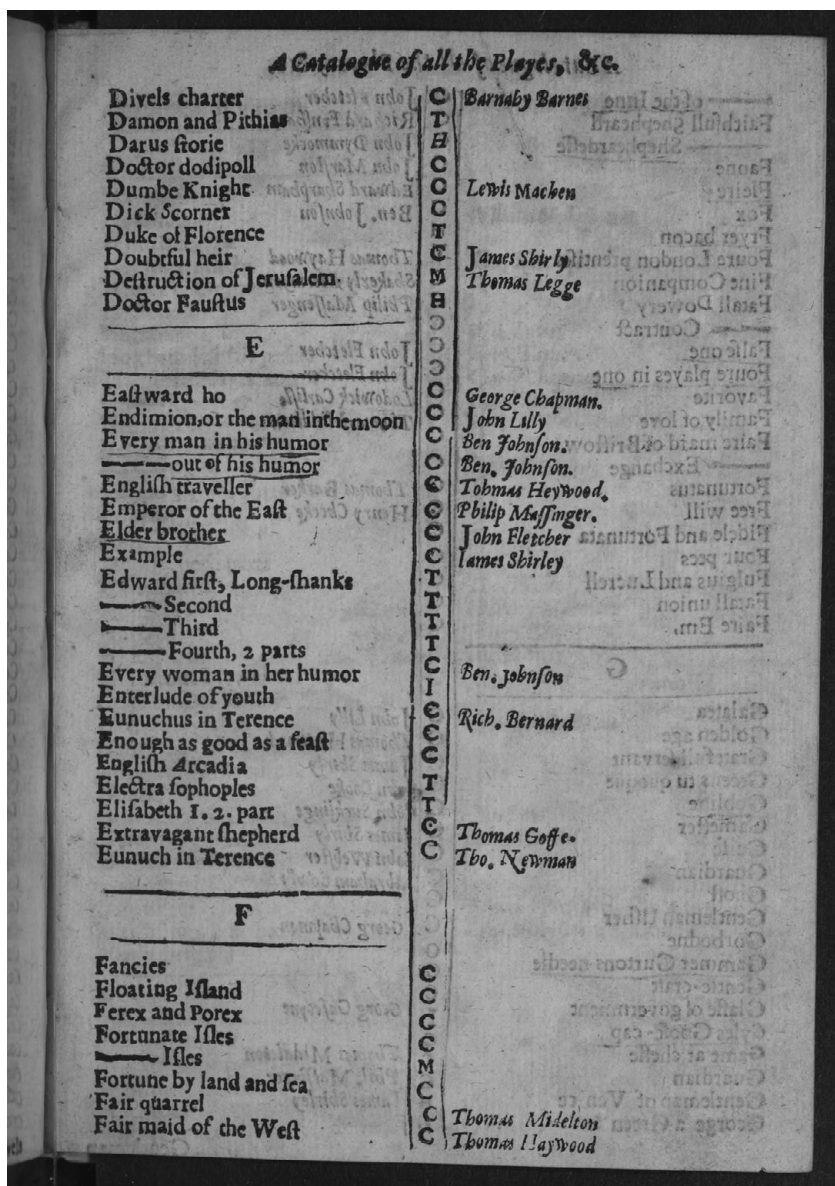 A Catalogue of all the Playes, &c.
Divels charter C Barnaby Barnes
Damon and Pithias T
Darus ſtorie H
Doctor dodipoll C
Dumbe Knight C Lewis Machen
Dick Scorner C
Duke of Florence T
Doubtful heir C James Shirly
Deſtruction of Jeruſalem. M Thomas Legge
Doctor Fauſtus H
E
Eaſtward ho C George Chapman.
Endimion, or the man inthemoon C John Lilly
Every man in his humor C Ben Johnſon.
——out of his humor C Ben. Johnſon.
Engliſh traveller C Tohmas Heywood.
Emperor of the Eaſt C Philip Maſſinger.
Elder brother C John Fletcher
Example C Iames Shirley
Edward firſt, Long-ſhanks T
——Second T
——Third T
——Fourth, 2 parts T
Every woman in her humor C Ben. Johnſon
Enterlude of youth I
Eunuchus in Terence C Rich. Bernard
Enough as good as a feaſt C
Engliſh Arcadia C
Electra ſophoples T
Eliſabeth 1. 2. part T
Extravagant ſhepherd C Thomas Goffe.
Eunuch in Terence C Tho. Newman
F
Fancies C
Floating Iſland C
Ferex and Porex C
Fortunate Iſles C
——Iſles M
Fortune by land and ſea C
Fair quarrel C Thomas Midelton
Fair maid of the Weſt C Thomas Haywood